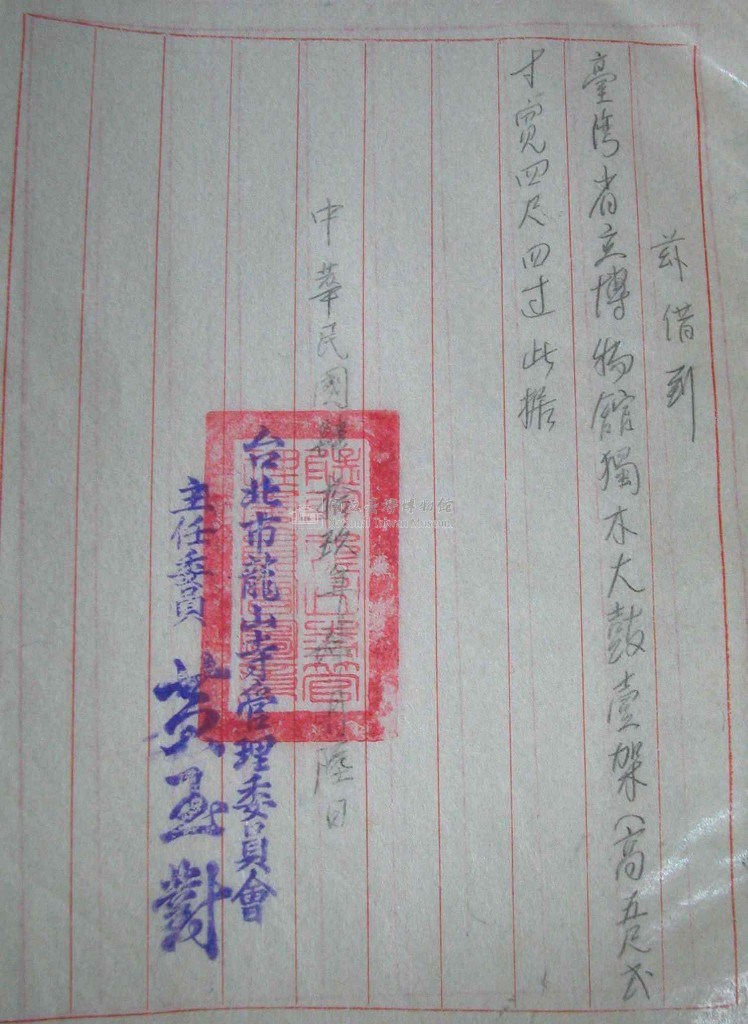 茲借到
臺灣省立博物館獨木大鼓壹架(高五尺弍
寸寬四尺四寸 此据
中華民國肆拾玖年 月陸日
台北市龍山寺管理委員會
主任委員 黃玉對